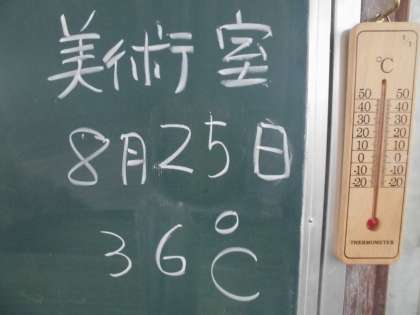 美術室
8月25日
36℃
℃
50 50
40 40
30 30
20 20
10 10
0 0
-10 -10
-20 -20
THERMOMETER